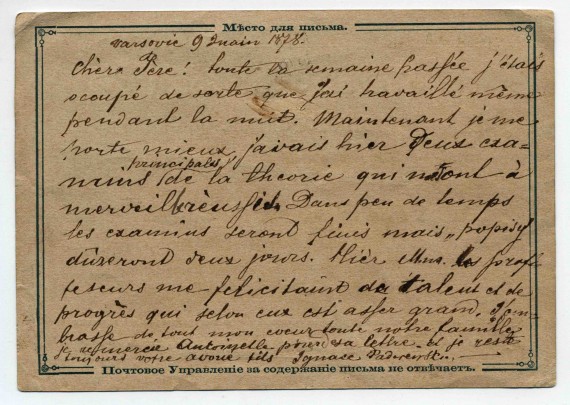 Мѣсто для письма.
Varsovie 9 2 juin 1878.
Chère Père! toute la semaine passée j'étais
ocoupé de sorte que j'ai travaillé même
pendant la nuit. Maintenant je me
porte mieux, j'avais hier deux exa-
principales
mins de la theorie qui m'ont à
merveil réussit. Dans peu de temps
les examins seront finis mais „popisy"
dûzeront deux jours. Hièr Mrs. les proffe
seseurs me felicitaint du talent et de
progrès qui selon eux est asser grand. J'em-
brasse de tout mon coeur toute notre famille
je remercie Antoinette pour sa lettre et je reste
toujours votre fils Ignace
Почтовое Управленіе за содержаніе письма не отвѣчаетъ.